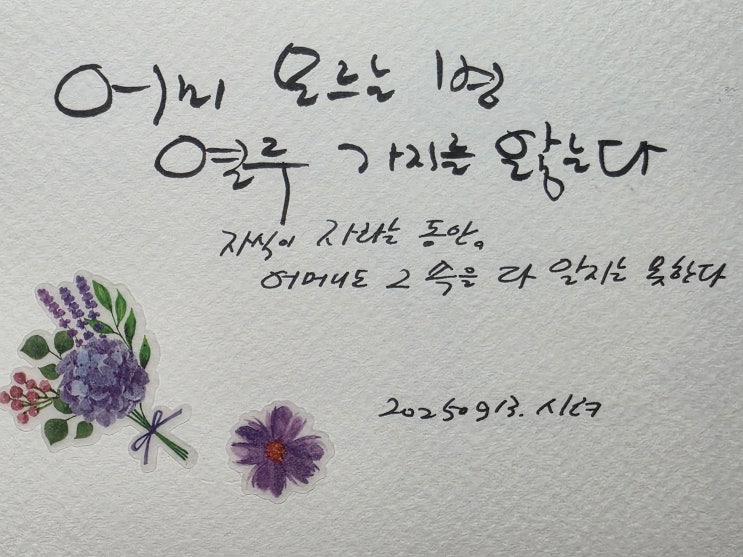 어미 모르는 병
열두 가지를 앓는다
자식이 자라는 동안,
어머니도 그 속을 다 알지는 못한다
20250913.